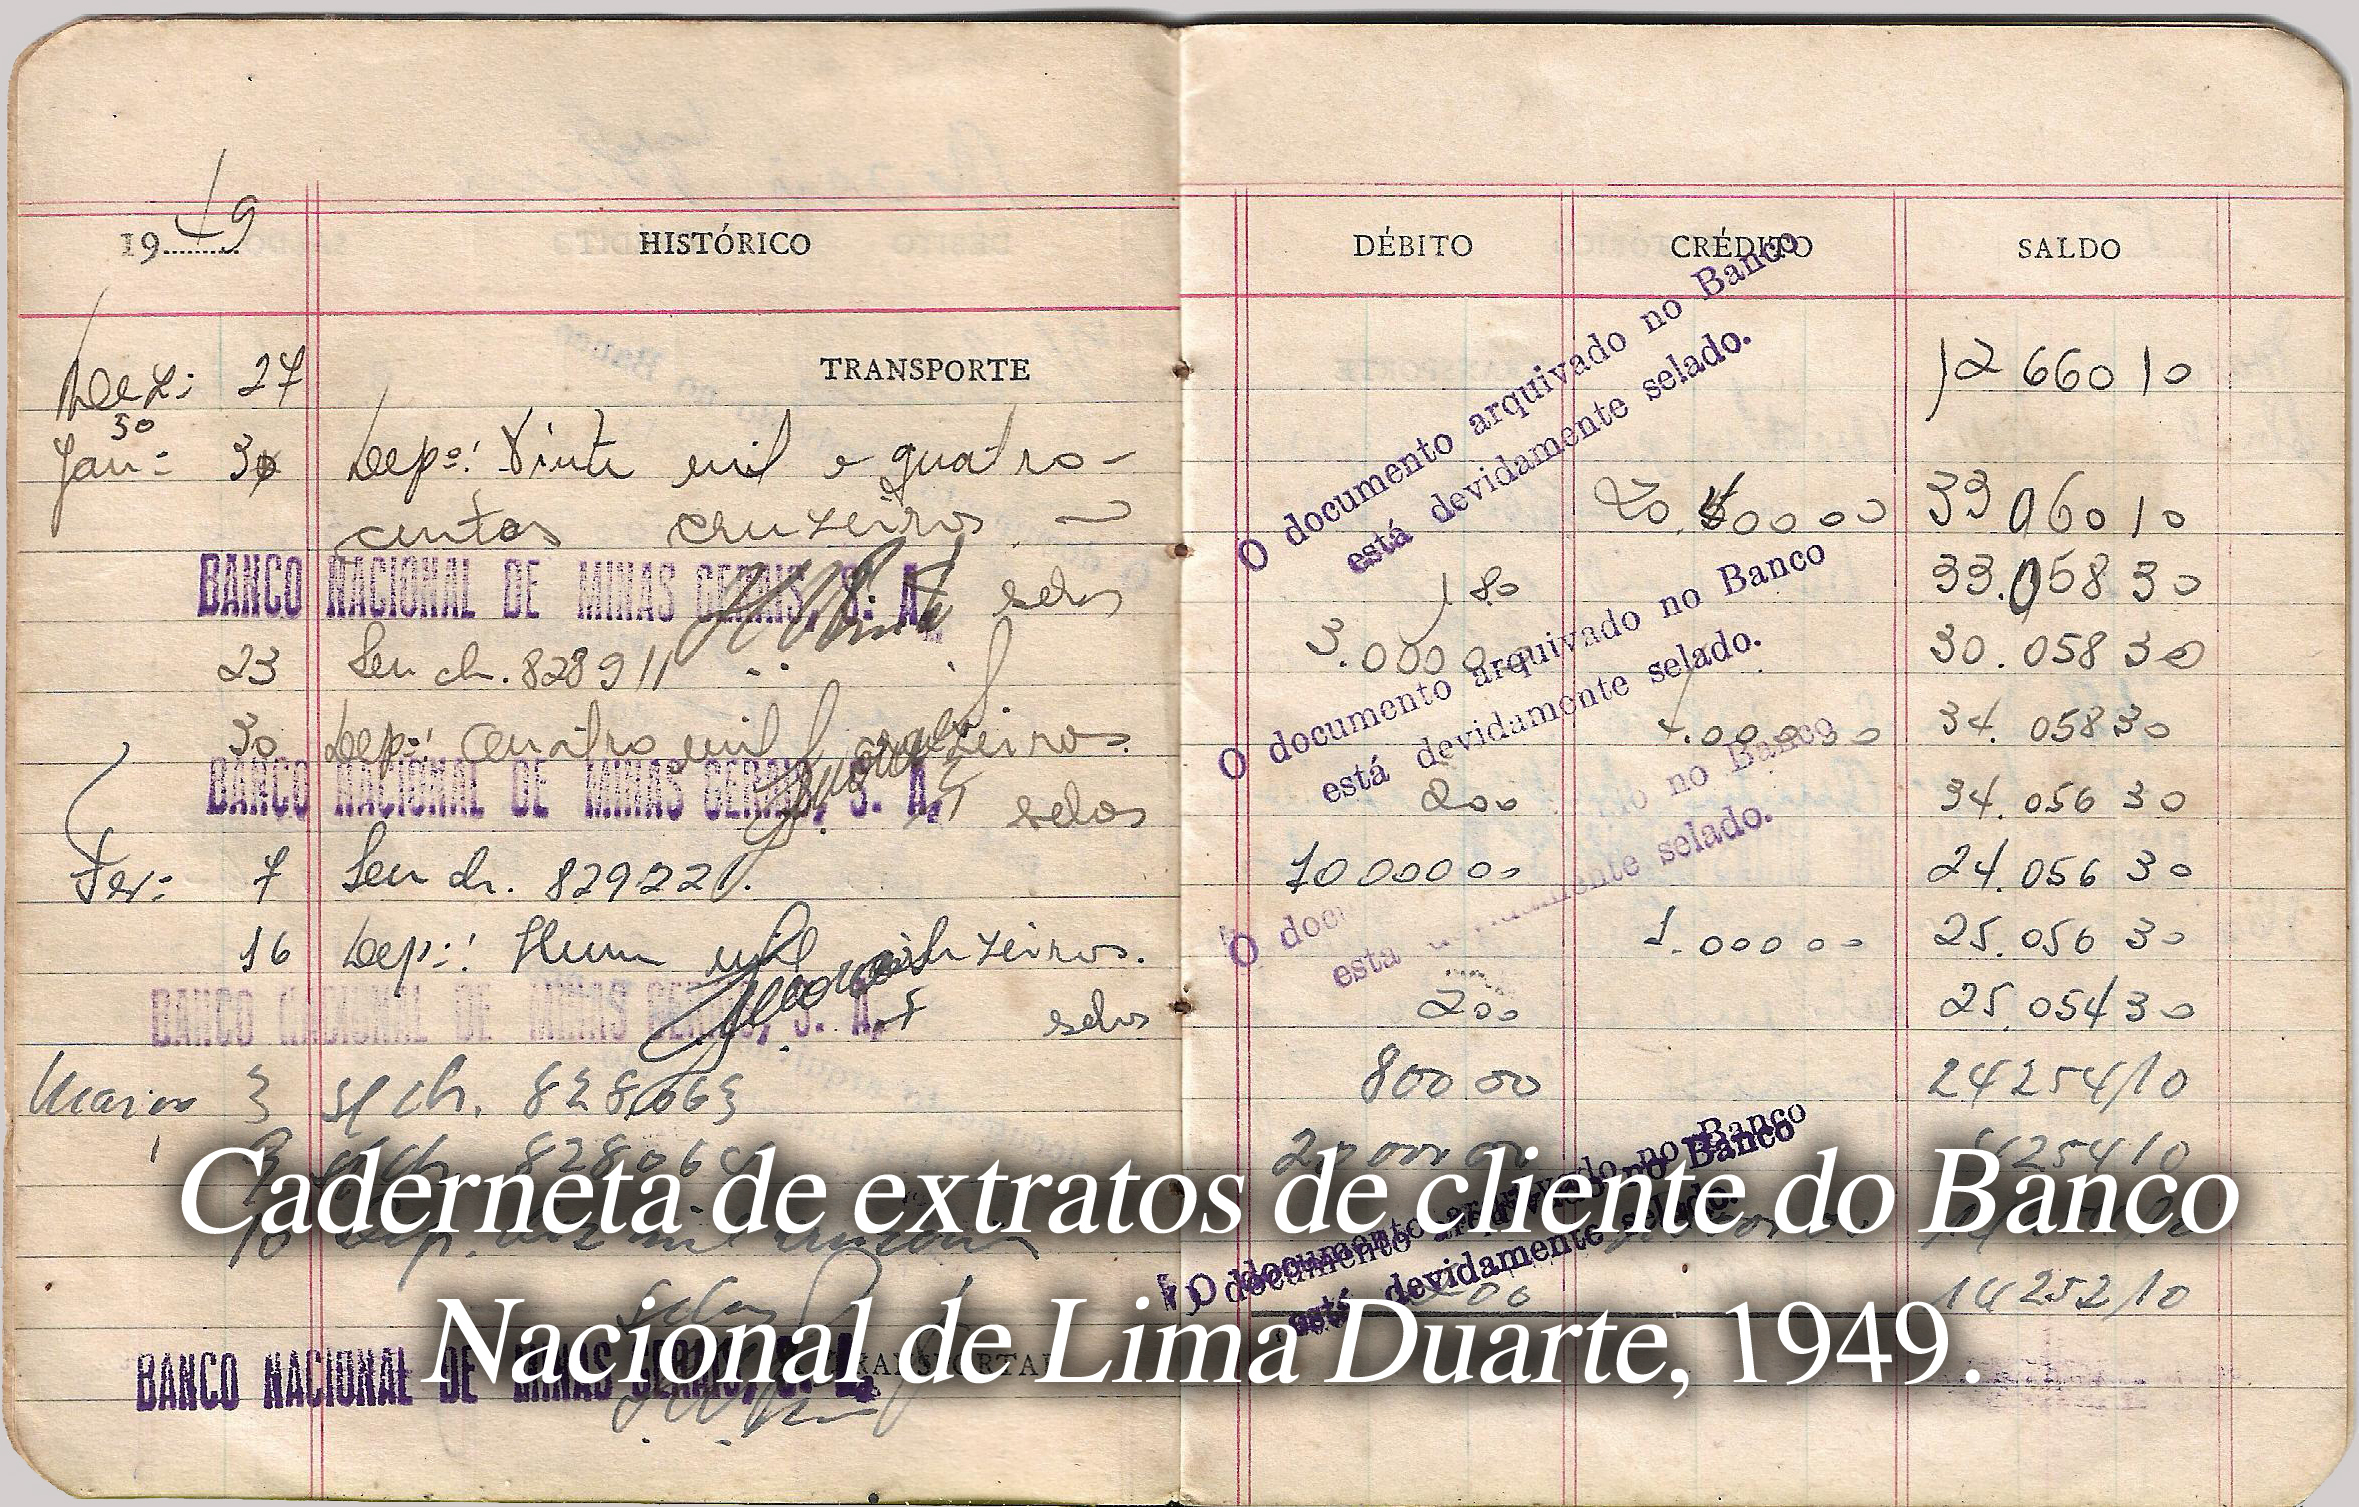 1949 HISTÓRICO DÉBITO CRÉDITO SALDO
Dez: 27 TRANSPORTE 12 660 10
50
Jan: 30 Depº: Vinte mil e quatro-
centos cruzeiros. 20.400 00 33 060 10
BANCO NACIONAL DE MINAS GERAIS, S. A. selos 1 80 33.058 30
23 Seu ch. 828911 3.000 30.058 30
30 Dep: Quatro mil cruzeiros. 4.000 00 34.058 30
BANCO NACIONAL DE MINAS GERAIS, S. A. selos 2 00 34.056 30
Fev: 7 Seu ch. 829221. 10 000 00 24.056 30
16 Dep: Hum mil cruzeiros. 1.000 00 25.056 30
BANCO NACIONAL DE MINAS GERAIS, S. A. selos 2 00 25.054 30
Março 3 s/ ch. 828063 800 00 24 254 10
9 s/ ch. 20 000 00 4 254 10
10 Dep. dez mil cruzeiros
selos 2 00 14 252 10
BANCO NACIONAL DE MINAS GERAIS, S. A. TRANSPORTAR
O documento arquivado no Banco
está devidamente selado.
O documento arquivado no Banco
está devidamente selado.
O docu no Banco
esta devidamente selado.
O documento arquivado no Banco
está devidamente selado.
Caderneta de extratos de cliente do Banco
Nacional de Lima Duarte, 1949.